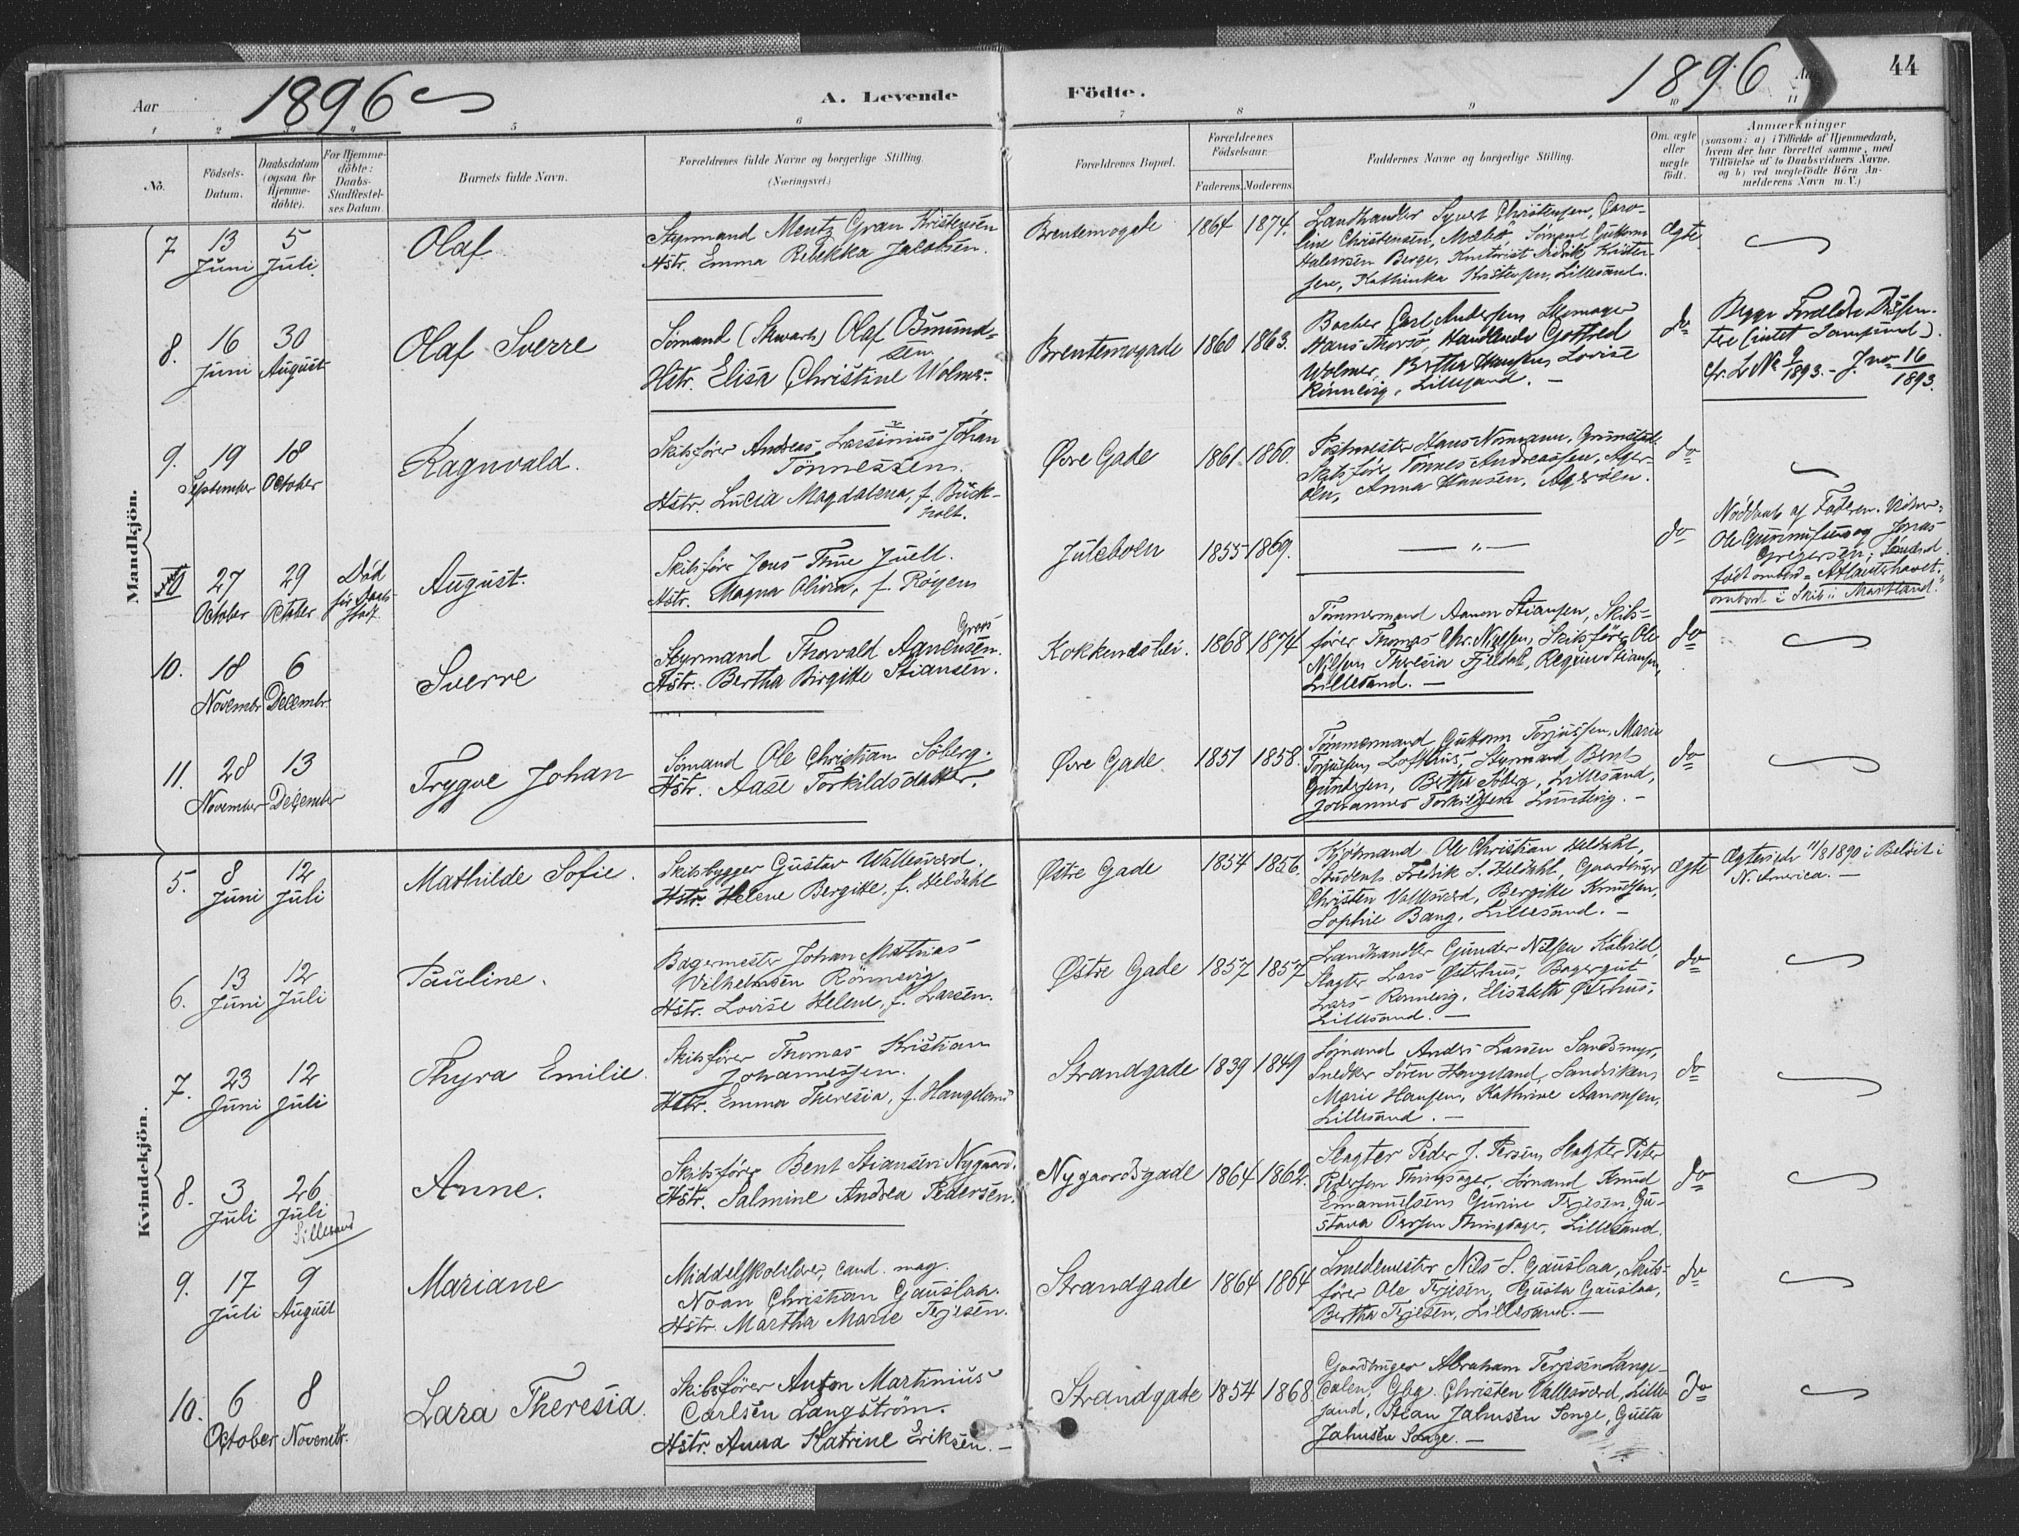 Aar 1896 A. Levende Födte. 1896 Aar 44
1 2 3 4 5 6 7 8 9 10 11
No. Födsels-Datum. Daabsdatum (ogsaa for Hjemmedöbte). For Hjemmedöbte: Daabs-Stadfæstelses Datum. Barnets fulde Navn. Forældrenes fulde Navne og borgerlige Stilling. (Næringsvei.) Forældrenes Bopæl. Forældrenes Födselsaar. Faderens. Moderens. Faddernes Navne og borgerlige Stilling. Om ægte eller uægte födt. Anmærkninger (saasom: a) i Tilfælde af Hjemmedaab, hvem der har forrettet samme, med Tilföielse af to Daabsvidners Navne, og b) ved uægtefödte Börn Anmelderens Navn m. V.)
Mandkjön.
7 13 Juni 5 Juli Olaf
Styrmand Mentz Gran Kristensen
Hstr. Emma Rebekka Jacobsen.
Brentemogade 1864 1874.
Landhandler Syvert Christensen, Caro-
line Christensen, Mæbø, Sømand Guttorm
Halvorsen Berge, Kontorist Fredrik Kristen-
sen, Kathinka Kristensen, Lillesand.
Ægte
8. 16 Juni 30 August Olaf Sverre
Sömand (Stuart) Olaf Osmund-
sen
Hstr. Elisa Christine Wolmer.
Brentemogade 1860 1863.
Carl Andersen
Hans Thorsö, Handlende Gotfred
Wolmer, Bertha Hansen, Lovise
Rönnevig, Lillesand. –
do
Begge Forældre Dissen-
tere
cfr. L No 9/1893. – J. no 16/1893.
9. 19 September 18 October Ragnvald.
Skibsfører Andreas Larsinius Johan
Tönnessen.
Hstr. Lucia Magdalena, f. Buck-
holt.
Øvre Gade 1861 1860.
Postmester Hans Normann, Grimstad.
Skibsfører Tønnes Andreassen, Ager-
öen, Anna Hansen, Ageröen.
do
10 27 October 29 October Död för Daabs- August.
Skibsfører Jens Juell.
Hstr. Magna Olivia, f. Röyem
Juleboen 1855 1869.
— " —
do
Nöddaab af Faderen. Vidner:
Ole Gunmundsen og Jonas
Gregersen; Sömænd.
født ombord Atlanterhavet.
ombord i Skib: "Markland."
10. 18 November 6 December Sverre
Styrmand Thorvald Agnensen.
Hstr. Bertha Birgitte Stiansen.
Kokkeneshei. 1868 1874
Tömmermand Aanon Stiansen, Skibs-
fører Thomas Chr. Nielsen, Skibsfører Ole
Nilsen, Theresia Fjeldal, Regine Stiansen,
Lillesand. –
do
11. 28 November 13 December Trygve Johan
Sömand Ole Christian Söberg.
Hstr. Aase Torkildsdatter.
Øvre Gade. 1851 1858.
Tömmermand Guttorm Torjussen, Marie
Torjussen, Lofthus, Styrmand Bent
Gundersen, Bertha Söberg, Lillesand,
Johannes Torkildsen Lundevig. –
do
Kvindekjön.
5. 8 Juni 12 Juli Mathilde Sofie.
Skibsbygger Gustav Vallesværd.
Hstr. Helene Bergitte, f. Heldahl
Østre Gade 1854 1856.
Kjöbmand Ole Christian Heldahl,
Student Fredrik S. Heldahl, Gaardbruger
Christen Vallesværd, Bergitte Knudsen,
Sophie Bang, Lillesand. –
Ægte
Ægteviede 11/8 1890 i Beloit i
N. America. –
6. 13 Juni 12 Juli Pauline.
Bagermester Johan Mathias
Wilhelmsen Rönnevig
Hstr. Lovise Helene, f. Larsen.
Østre Gade 1857 1857
Landhandler Gunder Nilsen Kalvild,
Slagter Lars Østerhus, Bagergut
Lars Rønnevig, Elisabeth Østerhus,
Lillesand. –
do
7. 23 Juni 12 Juli Thyra Emilie
Skibsfører Thomas Kristian
Johannessen.
Hstr. Emma Theresia, f. Haugeland
Strandgade 1839 1849
Sømand Anders Larsen Sandsmyr,
Snedker Sören Haugeland, Sandviken,
Marie Hansen, Kathrine Aanonsen,
Lillesand. –
do
8. 3 Juli 26 Juli Lillesand Anne.
Skibsfører Bent Stiansen Nygaard.
Hstr. Salmine Andrea Pedersen.
Nygaardsgade 1864 1862.
Slagter Peder J. Persen, Slagter Peter
Pedersen Thingsager, Sömand Knud
Emanuelsen, Gurine Terjesen, Gu-
stava Persen Thingsager, Lillesand.
do
9. 17 Juli 9 August Mariane
Middelskolelærer, cand. mag.
Noan Christian Gauslaa.
Hstr. Martha Marie Terjesen.
Strandgade 1864 1864
Smedemester Nils S. Gauslaa, Skibs-
fører Ole Terjesen, Gusta Gauslaa,
Bertha Terjesen, Lillesand. –
do
10. 6 October 8 Novembr. Lara Theresia.
Skibsfører Anton Martinius
Carlsen Langström.
Hstr. Anna Katrine Eriksen. –
Strandgade 1854 1868
Gaardbruger Abraham Terjesen Lange-
dalen, Gbg. Christen Vallesværd, Lille-
sand, Stian Jahnsen Songe, Gusta
Jahnsen Songe. –
do